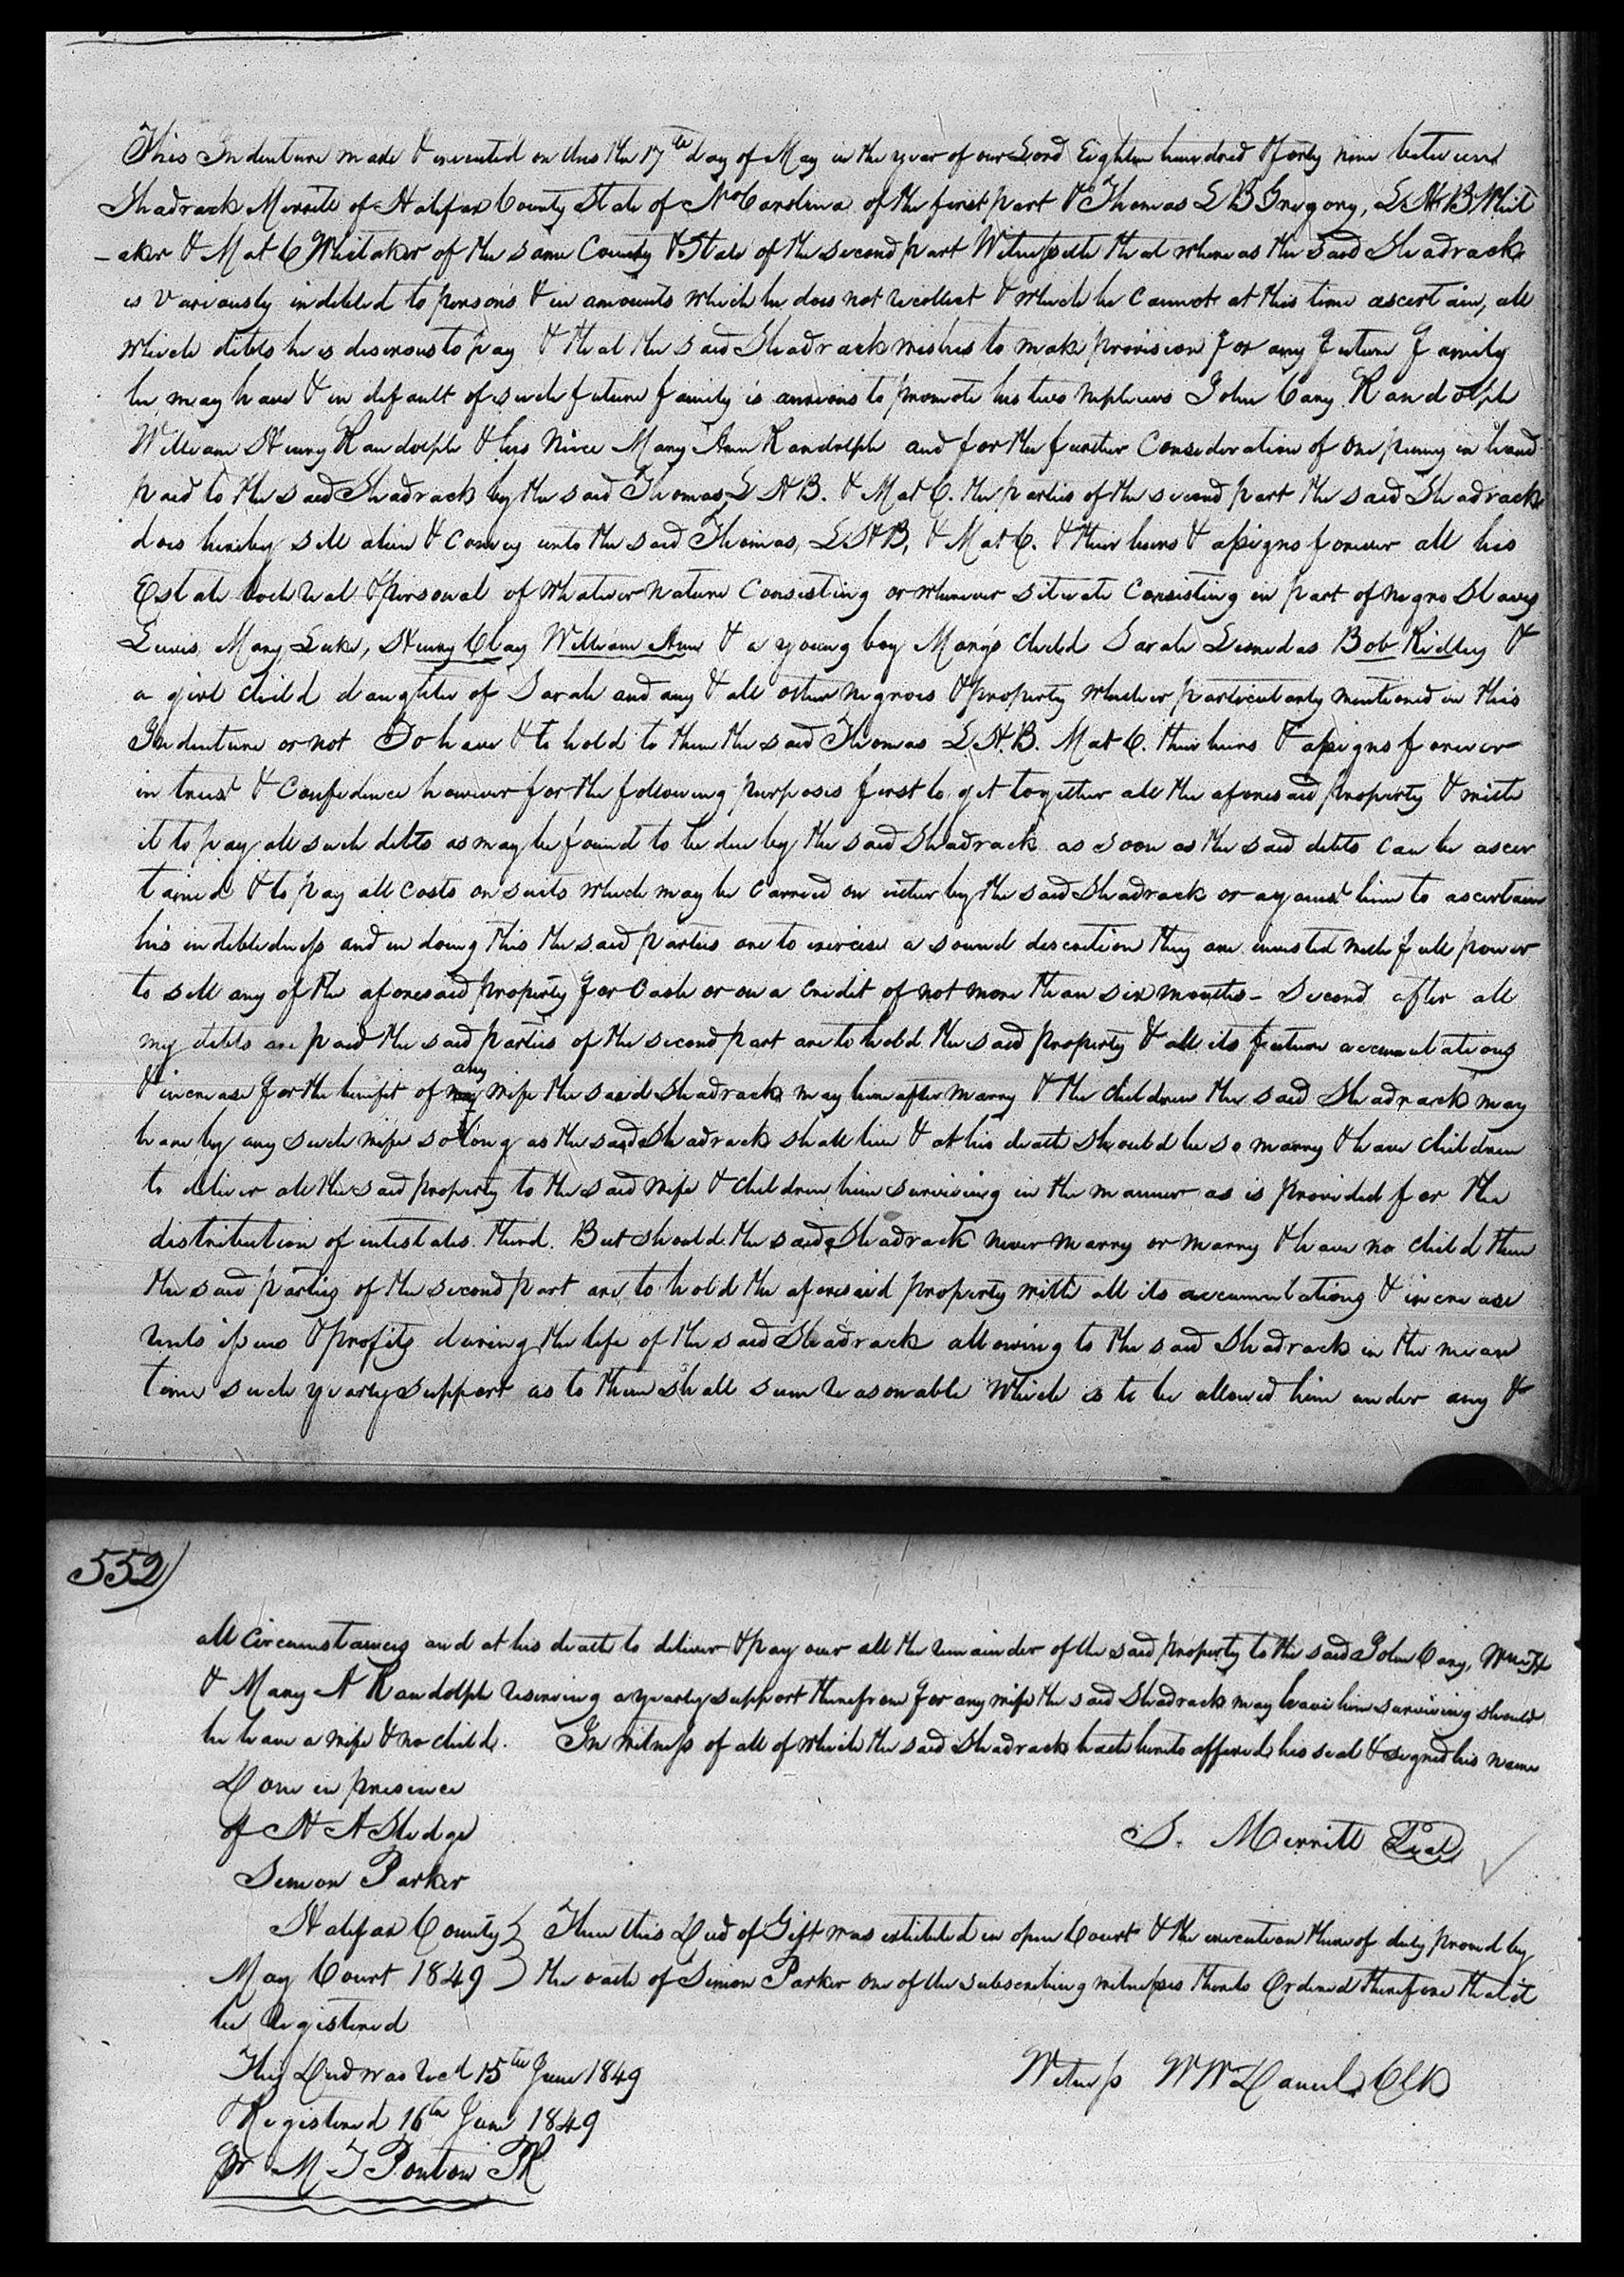 This Indenture made & executed on this the 17th day of May in the year of our Lord Eighteen hundred & forty nine between
Shadrack Merritt of Halifax County State of No Carolina of the first part & Thomas L B Gregory, L H B Whit
-aker & Mat C Whitaker of the same County & State of the second part Witnesseth that whereas the said Shadrack
is variously indebted to persons & in amounts which he does not recollect & which he cannot at this time ascertain, all
which debts he is desirous to pay & that the said Shadrack wishes to make provision for any future family
he may have & in default of such future family is anxious to promote his two nephews John Cary Randolph
William Henry Randolph & his Niece Mary Ann Randolph and for the further Consideration of one penny in hand
paid to the said Shadrack by the said Thomas L H B. & Mat C. the parties of the second part the said Shadrack
does hereby sell alien & convey unto the said Thomas, L H B, & Mat C. & their heirs & assigns forever all his
Estate both real & personal of whatever nature Consisting or wherever situate Consisting in part of negro Slaves
Lewis, Mary, Luke, Henry Clay William Ann & a young boy Mary's child Sarah Leonidas Bob Ridley &
a girl child daughter of Sarah and any & all other negroes & property whether particularly mentioned in this
Indenture or not To have & to hold to them the said Thomas L H. B. Mat C. their heirs & assigns forever
in trust & Confidence however for the following purposes first to get together all the aforesaid property & with
it to pay all such debts as may be found to be due by the said Shadrack as soon as the said debts can be ascer
tained & to pay all costs on suits which may be carried on either by the said Shadrack or against him to ascertain
his indebtedness and in doing this the said parties are to exercise a sound discretion they are invested with full power
to sell any of the aforesaid property for Cash or on a credit of not more than six months - Second after all
my debts are paid the said parties of the second part are to hold the said property & all its future accumulations
& increase for the benefit of any wife the said Shadrack may hereafter marry & the children the said Shadrack may
have by any such wife so long as the said Shadrack shall live & at his death should he so marry & have children
to deliver all the said property to the said wife & children him surviving in the manner as is provided for the
distribution of intestates. third. But should the said Shadrack never marry or marry & have no child then
the said parties of the second part are to hold the aforesaid property with all its accumulations & increase
rents issues & profits during the life of the said Shadrack allowing to the said Shadrack in the mean
time such yearly support as to them shall seem reasonable which is to be allowed him under any &
552)
all circumstances and at his death to deliver & pay over all the remainder of the said property to the said John Cary, Wm H
& Mary A Randolph reserving a yearly support therefrom for any wife the said Shadrack may leave him surviving should
he have a wife & no child. In witness of all of which the said Shadrack hath hereto affixed his seal & signed his name
Done in presence
of H A Sledge
S. Merritt Seal
Simon Parker
Halifax County } Then this Deed of Gift was exhibited in open Court & the execution thereof duly proved by
May Court 1849 } the oath of Simon Parker one of the subscribing witnesses thereto Ordered therefore that it
be Registered
This Deed was recd 15th June 1849
Witness W W Daniel Clk
& Registered 16th June 1849
pr M T Ponton PR